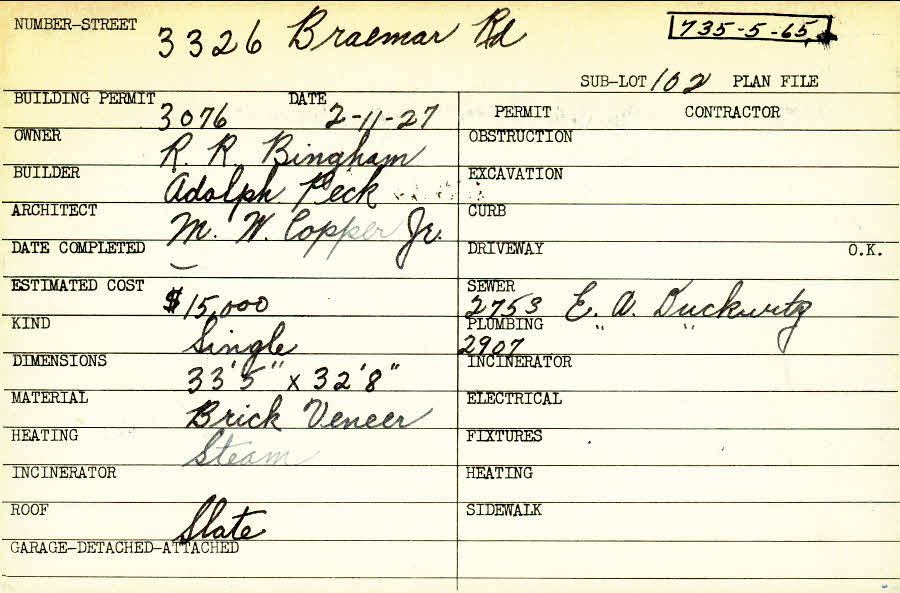 NUMBER-STREET 3326 Braemar Rd 735-5-65
SUB-LOT 102 PLAN FILE
BUILDING PERMIT 3076 DATE 2-11-27
PERMIT CONTRACTOR
OWNER R. R. Bingham
OBSTRUCTION
BUILDER Adolph Peck
EXCAVATION
ARCHITECT M. W. Copper Jr.
CURB
DATE COMPLETED –
DRIVEWAY O.K.
ESTIMATED COST $15,000
SEWER 2753 E. A. Duckwitz
KIND Single
PLUMBING 2907 " "
DIMENSIONS 33'5" x 32'8"
INCINERATOR
MATERIAL Brick Veneer
ELECTRICAL
HEATING Steam
FIXTURES
INCINERATOR
HEATING
ROOF Slate
SIDEWALK
GARAGE-DETACHED-ATTACHED